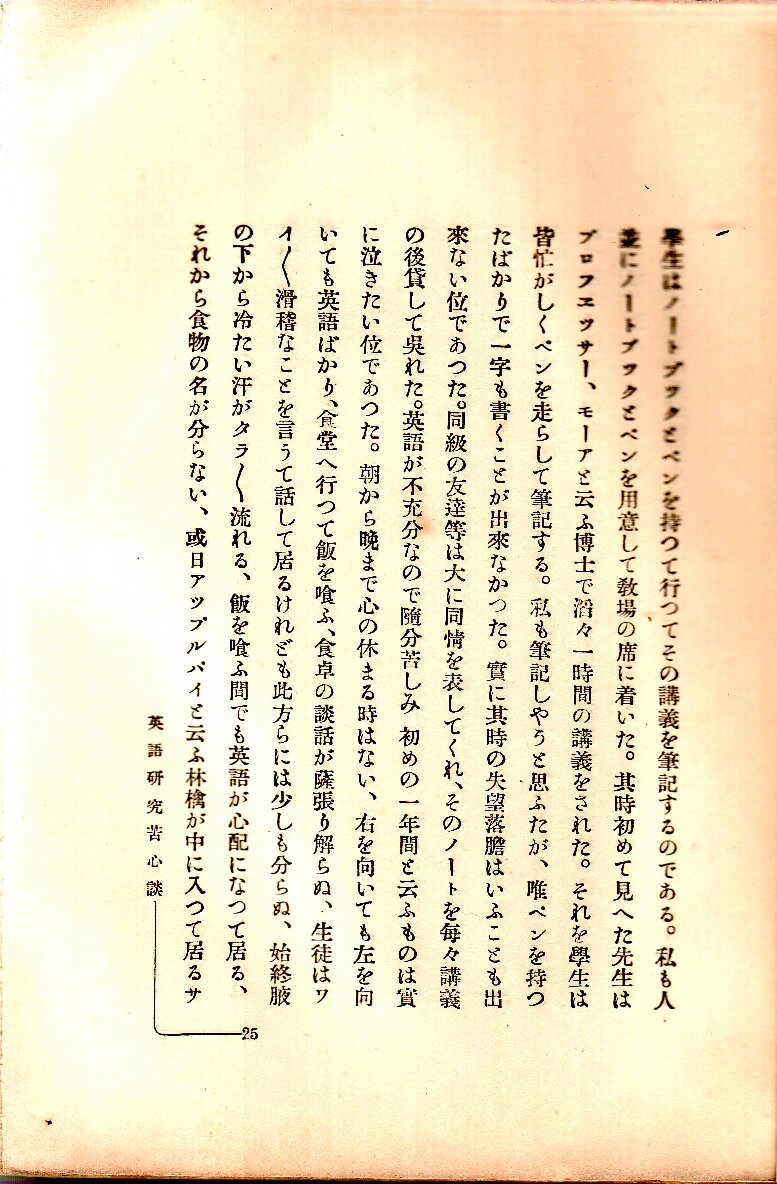 學生はノートブックとペンを持つて行つてその講義を筆記するのである。私も人
並にノートブックとペンを用意して敎場の席に着いた。其時初めて見へた先生は
プロフエッサー、モーアと云ふ博士で滔々一時間の講義をされた。それを學生は
皆忙がしくペンを走らして筆記する。私も筆記しやうと思ふたが、唯ペンを持つ
たばかりで一字も書くことが出來なかつた。實に其時の失望落膽はいふことも出
來ない位であつた。同級の友達等は大に同情を表してくれ、そのノートを每々講義
の後貸して吳れた。英語が不充分なので隨分苦しみ 初めの一年間と云ふものは實
に泣きたい位であつた。朝から晚まで心の休まる時はない、右を向いても左を向
いても英語ばかり、食堂へ行つて飯を喰ふ、食卓の談話が薩張り解らぬ、生徒はワ
イ〱滑稽なことを言うて話して居るけれども此方らには少しも分らぬ、始終腋
の下から冷たい汗がタラ〱流れる、飯を喰ふ間でも英語が心配になつて居る、
それから食物の名が分らない、或日アップルパイと云ふ林檎が中に入つて居るサ
英語研究苦心談
25